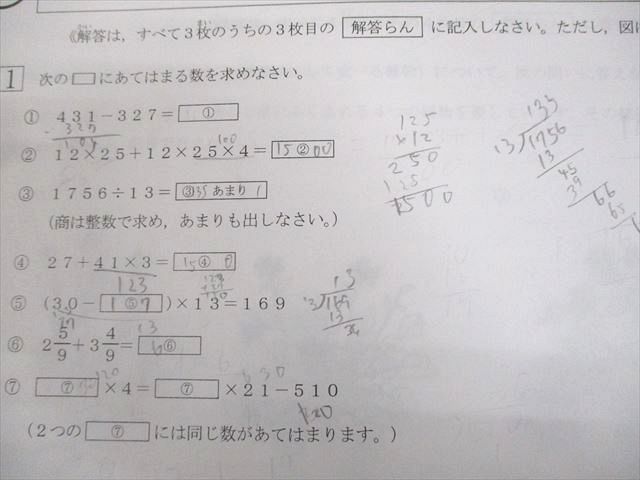 《解答は，すべて3枚のうちの3枚目の 解答らん に記入しなさい。ただし，図
1 次の□にあてはまる数を求めなさい。
① 431－327＝ ①
327
② 12×25＋12×25×4＝ ② 1500
100
③ 1756÷13＝ ③ 135 あまり 1
（商は整数で求め，あまりも出しなさい。）
④ 27＋41×3＝ ④ 150
123
⑤ （30－ ⑤ 17 ）×13＝169
13
⑥ 2 5/9 ＋3 4/9 ＝ ⑥ 6
⑦ ⑦ ×4＝ ⑦ ×21－510
（2つの ⑦ には同じ数があてはまります。）
125
×12
250
125
1500
135
13 1756
13
45
39
66
65
1
13
13 169
13